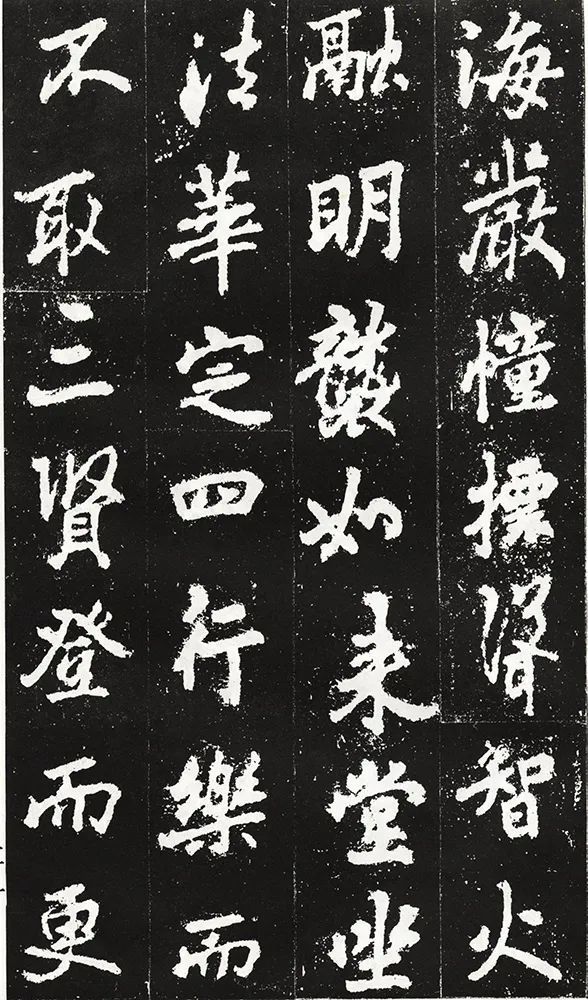 海嚴幢摽聳智火
融明襲如来堂坐
法華定四行樂而
不取三賢登而更